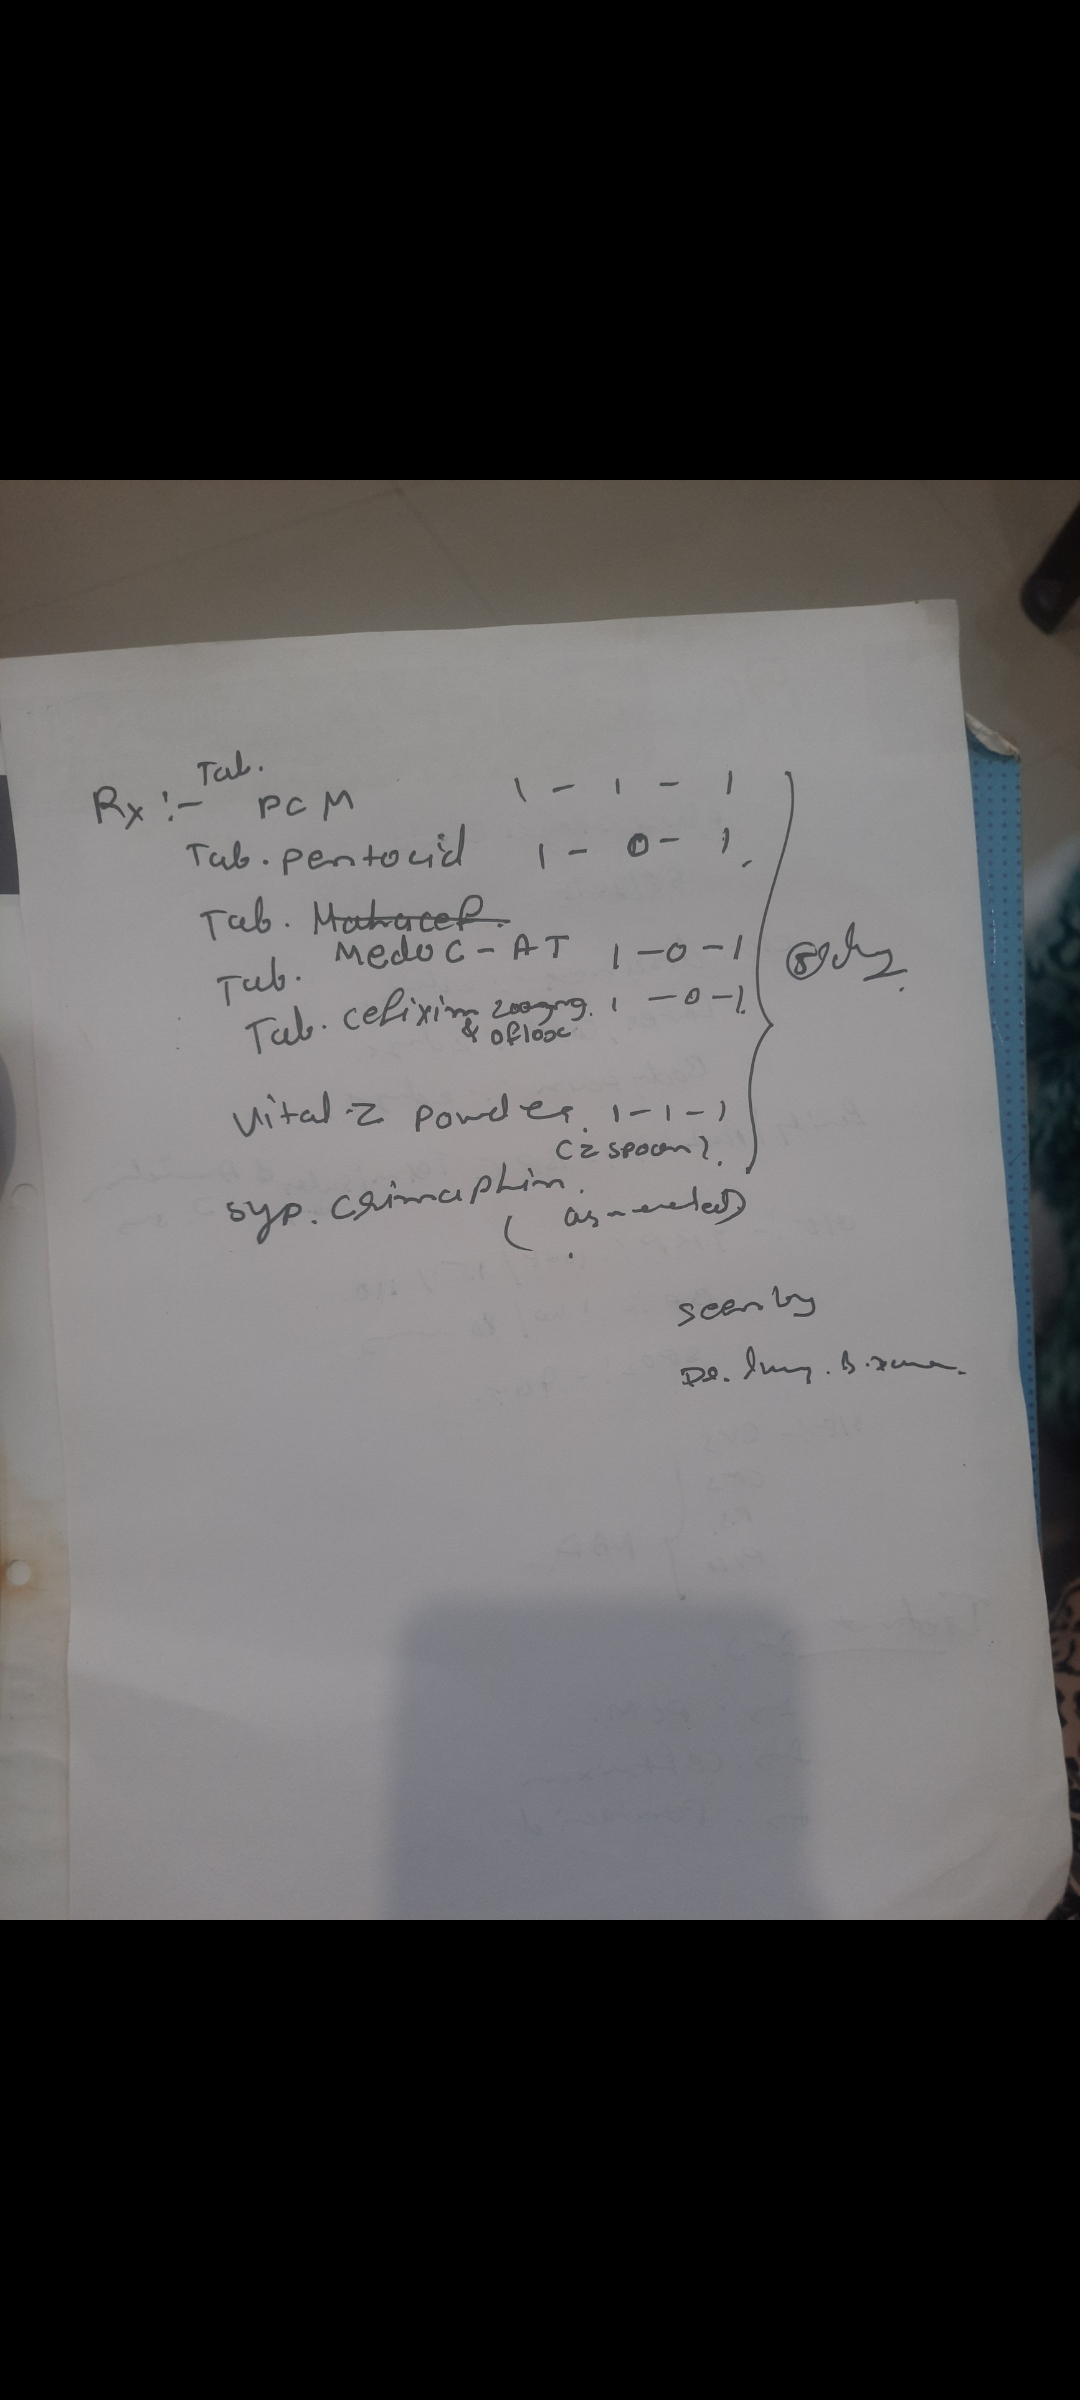 Rx :- Tab. PCM 1 - 1 - 1
Tab. pentocid 1 - 0 - 1.
Tab. Mahacef.
Tab. Medoc - AT 1 - 0 - 1
Tab. cefixim 200mg. 1 - 0 - 1.
& oflox
Vital-Z powder. 1 - 1 - 1
(2 spoon).
syp. Crimaphin.
(as needed)
seen by
Dr.